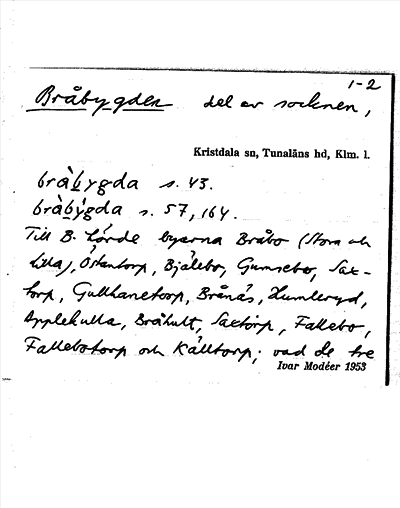 1-2
Bråbygden del av socknen,
Kristdala sn, Tunaläns hd, Klm. l.
bràb̲ỳgda s. 43.
bràbýgda s. 57, 164.
Till B. hörde byarna Bråbo (Stora och
Lilla), Östantorp, Bjälebo, Gumsebo, Sax-
torp, Gullhanetorp, Brånäs, Humleryd,
Applekulla, Bråhult, Saxtorp, Fallebo,
Fallebotorp och Kålltorp; vad de tre
Ivar Modéer 1953